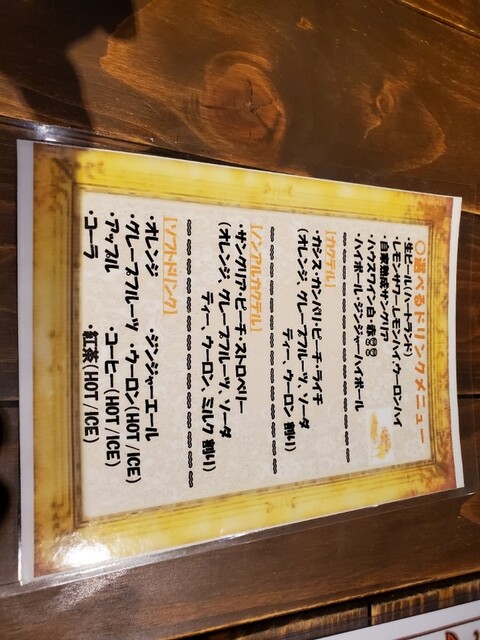 ○選べるドリンクメニュー
・生ビール(ハートランド)
・レモンサワー・レモンハイ・ウーロンハイ
・自家熟成サングリア
・ハウスワイン白・赤
・ハイボール・ジンジャーハイボール
[カクテル]
・カシス・カンパリ・ピーチ・ライチ
(オレンジ、グレープフルーツ、ソーダ
ティー、ウーロン 割り)
[ノンアルカクテル]
・サングリア・ピーチ・ストロベリー
(オレンジ、グレープフルーツ、ソーダ
ティー、ウーロン、ミルク 割り)
[ソフトドリンク]
・オレンジ ・ジンジャーエール
・グレープフルーツ ・ウーロン(HOT/ICE)
・アップル ・コーヒー(HOT/ICE)
・コーラ ・紅茶(HOT/ICE)